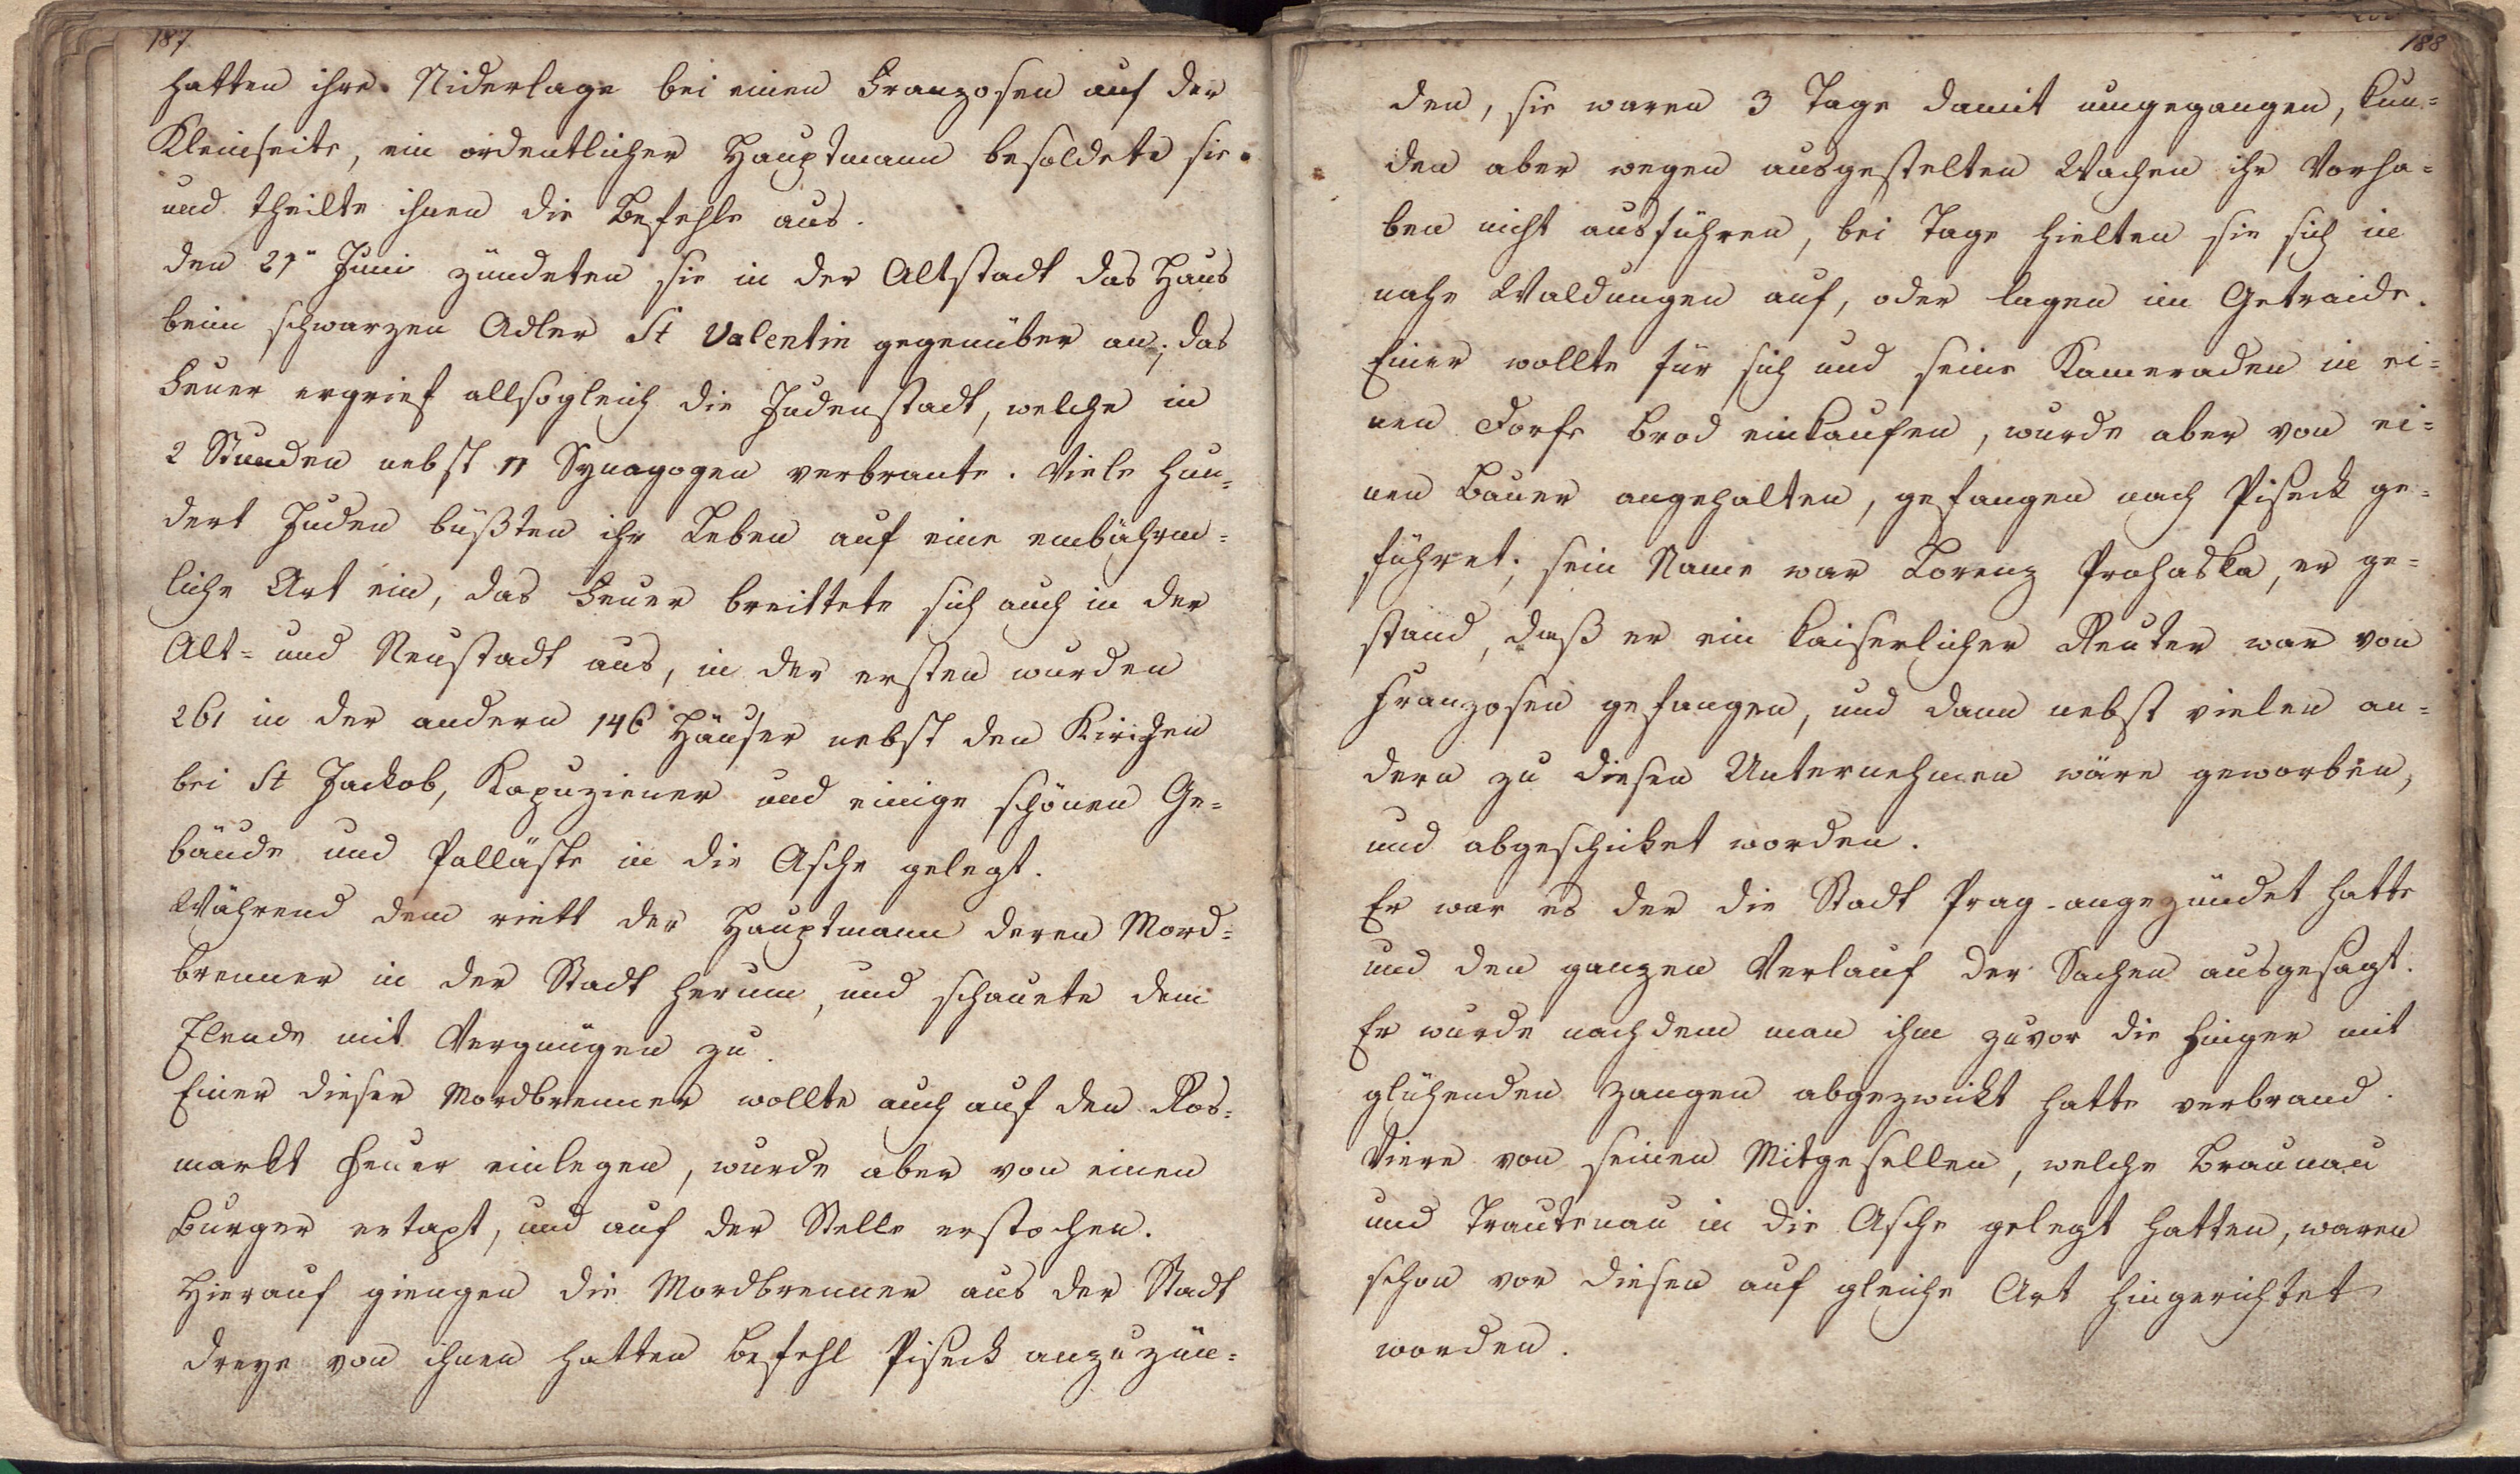 187
hatten ihre Niderlage bei einen Franzosen auf der
Kleinseite, ein ordentlicher Hauptmann besoldete sie.
und theilte ihnen die Befehle aus.
den 21" Juni zündeten sie in der Altstadt das Haus
beim schwarzen Adler St Valentin gegenüber an; das
Feuer ergrief allsogleich die Judenstadt, welche in
2 Stunden nebst 11 Synagogen verbrante. Viele hun=
dert Juden büßten ihr Leben auf eine erbährm=
liche Art ein, das Feuer breittete sich auch in der
Alt= und Neustadt aus, in der ersten wurden
261 in der andern 146 Häuser nebst den Kirichen
bei St Jackob, Kapuziener und einige schönen Ge=
bäude und Palläste in die Asche gelegt.
Während dem riett der Hauptmann deren Mord=
brenner in der Stadt herum, und schauete dem
Elende mit Vergnügen zu.
Einer dieser Mordbrenner wollte auch auf den Ros=
markt Feuer einlegen, wurde aber von einen
Burger ertapt, und auf der Stelle erstochen.
Hierauf giengen die Mordbrenner aus der Stadt
dreye von ihnen hatten Befehl Piseck anzuzün=
188
den, sie waren 3 Tage damit umgegangen, kun=
den aber wegen ausgestelten Wachen ihr Vorha=
ben nicht ausführen, bei Tage hielten sie sich in
nahe Waldungen auf, oder lagen im Getraide.
Einer wollte für sich und seine Kameraden in ei=
nen Dorfe Brod einkaufen, wurde aber von ei=
nen Bauer angehalten, gefangen nach Piseck ge=
führet; sein Name war Lorenz Prohaska, er ge=
stand, daß er ein kaiserlicher Reuter war von
Franzosen gefangen, und dann nebst vielen an=
dern zu diesen Unternehmen wäre geworben,
und abgeschicket worden.
Er war es der die Stadt Prag angezündet hatte
und den ganzen Verlauf der Sachen ausgesagt.
Er wurde nachdem man ihm zuvor die Finger mit
glühenden Zangen abgezwickt hatte verbrand.
Viere von seinen Mitgesellen, welche Braunau
und Trautenau in die Asche gelegt hatten, waren
schon vor diesen auf gleiche Art hingerichtet
worden.